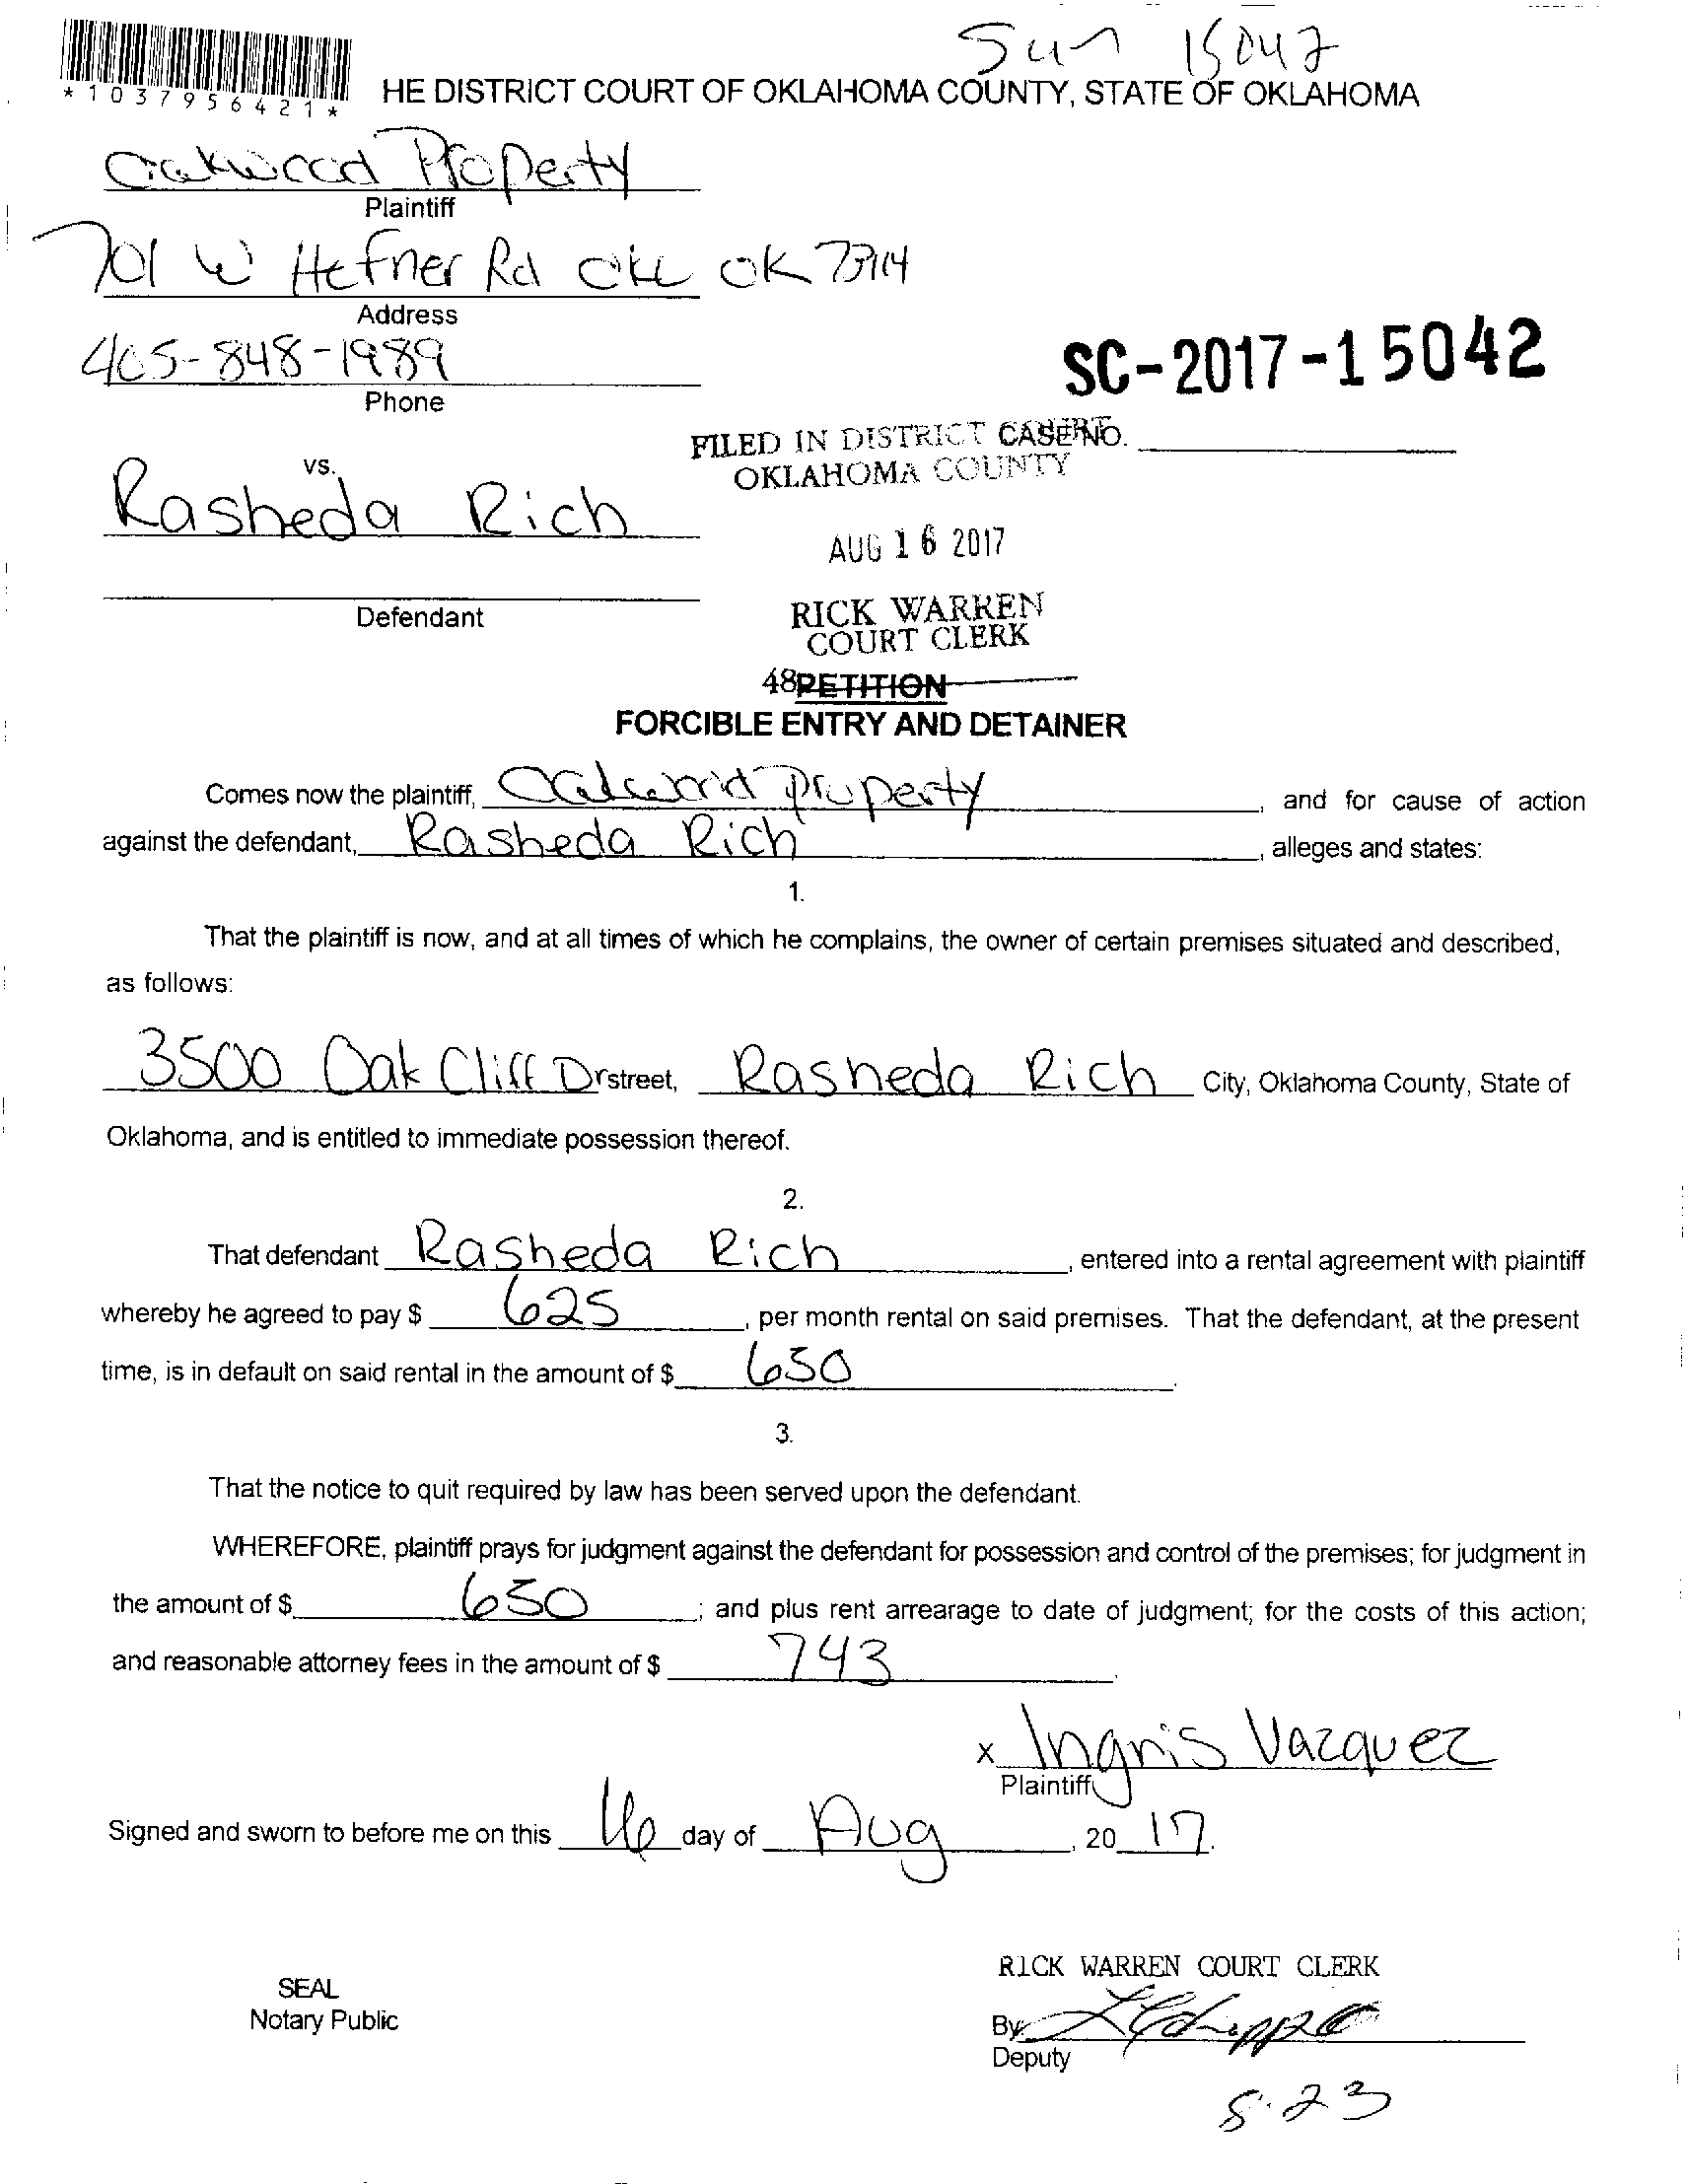 *1037956421*
HE DISTRICT COURT OF OKLAHOMA COUNTY, STATE OF OKLAHOMA
Oakwood Property
Plaintiff
701 W Hefner Rd OKC OK 73114
Address
405-848-1989
Phone
SC-2017-15042
CASE NO.
FILED IN DISTRICT COURT
OKLAHOMA COUNTY
vs.
Rasheda Rich
AUG 16 2017
Defendant
RICK WARREN
COURT CLERK
48
PETITION
FORCIBLE ENTRY AND DETAINER
Comes now the plaintiff, Oakwood Property, and for cause of action
against the defendant, Rasheda Rich, alleges and states:
1.
That the plaintiff is now, and at all times of which he complains, the owner of certain premises situated and described,
as follows:
3500 Oak Cliff Dr street, Rasheda Rich City, Oklahoma County, State of
Oklahoma, and is entitled to immediate possession thereof.
2.
That defendant Rasheda Rich, entered into a rental agreement with plaintiff
whereby he agreed to pay $ 625, per month rental on said premises. That the defendant, at the present
time, is in default on said rental in the amount of $ 650.
3.
That the notice to quit required by law has been served upon the defendant.
WHEREFORE, plaintiff prays for judgment against the defendant for possession and control of the premises; for judgment in
the amount of $ 650; and plus rent arrearage to date of judgment; for the costs of this action;
and reasonable attorney fees in the amount of $ 743.
x Ingris Vazquez
Plaintiff
Signed and sworn to before me on this 16 day of Aug, 20 17.
RICK WARREN COURT CLERK
SEAL
Notary Public
By
Deputy
8.23